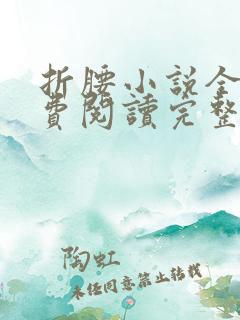 折腰小說全
費閱讀完整
陶虹
未任同意禁止转载